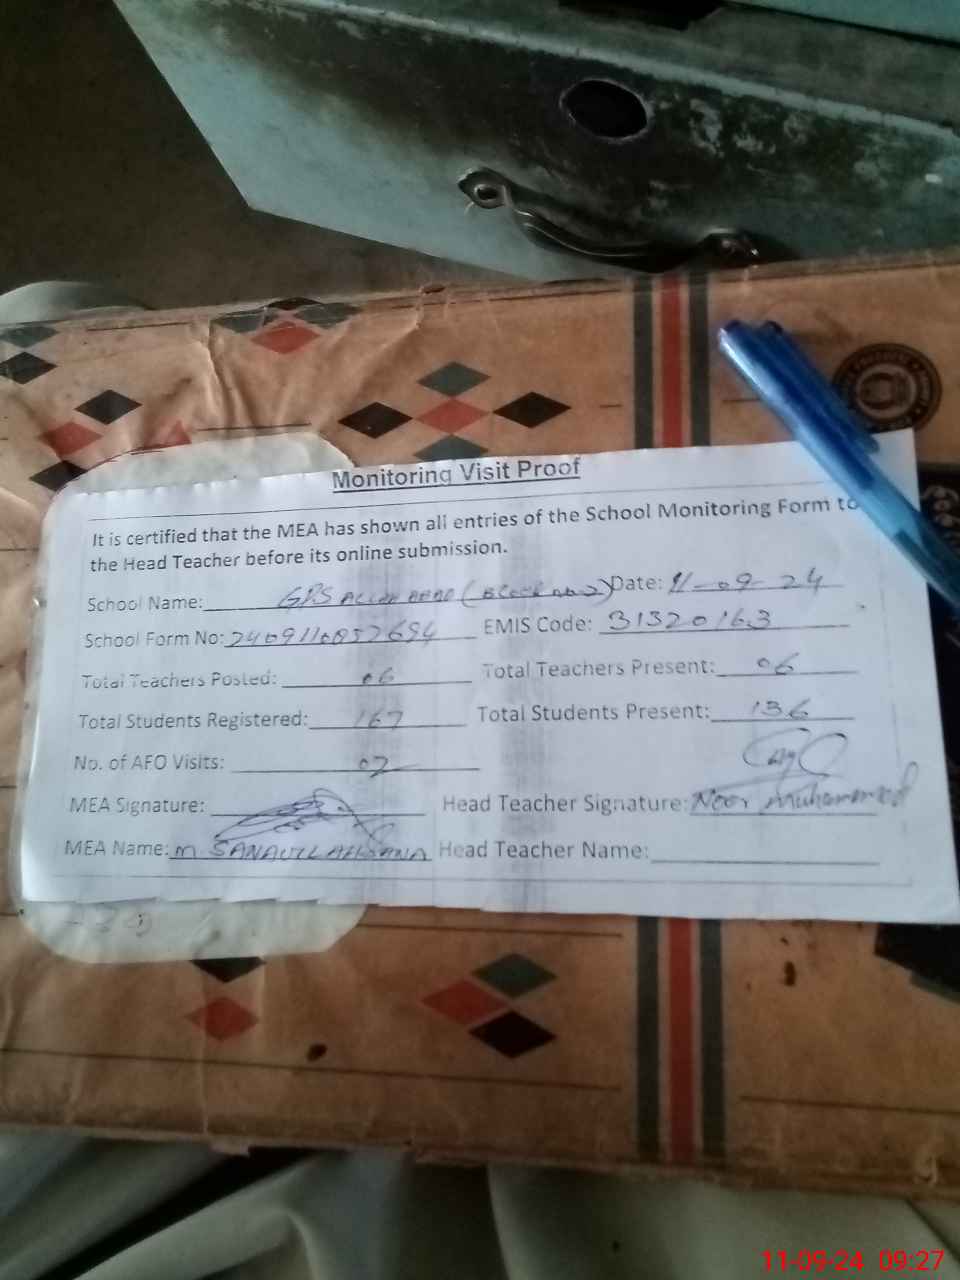 Monitoring Visit Proof
It is certified that the MEA has shown all entries of the School Monitoring Form to
the Head Teacher before its online submission.
School Name: GPS Date: 11-09-24
School Form No: EMIS Code: 31320163
Total Teachers Posted: 06 Total Teachers Present: 06
Total Students Registered: 167 Total Students Present: 136
No. of AFO Visits: 02
MEA Signature: Head Teacher Signature: Noor Muhammad
MEA Name: M SANAULLAH RANA Head Teacher Name:
11-09-24 09:27